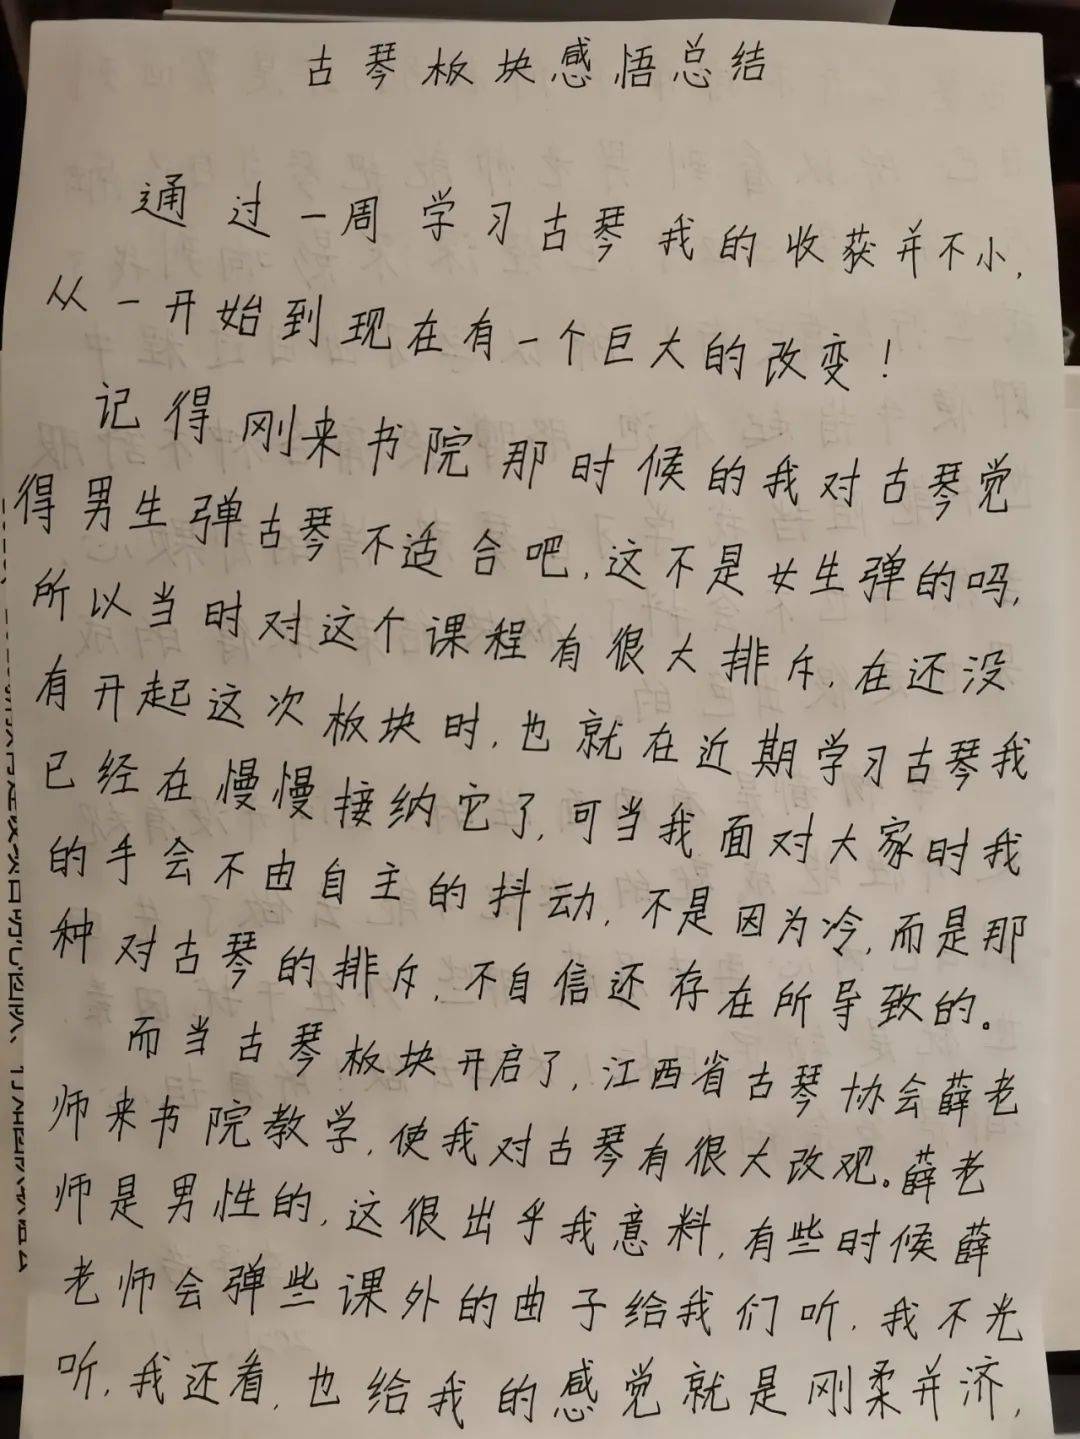 古琴板块感悟总结
通过一周学习古琴我的收获并不小,
从一开始到现在有一个巨大的改变!
记得刚来书院那时候的我对古琴觉
得男生弹古琴不适合吧,这不是女生弹的吗,
所以当时对这个课程有很大排斥,在还没
有开起这次板块时,也就在近期学习古琴我
已经在慢慢接纳它了,可当我面对大家时我
的手会不由自主的抖动,不是因为冷,而是那
种对古琴的排斥,不自信还存在所导致的。
而当古琴板块开启了,江西省古琴协会薛老
师来书院教学,使我对古琴有很大改观。薛老
师是男性的,这很出乎我意料,有些时候薛
老师会弹些课外的曲子给我们听,我不光
听,我还看,也给我的感觉就是刚柔并济,